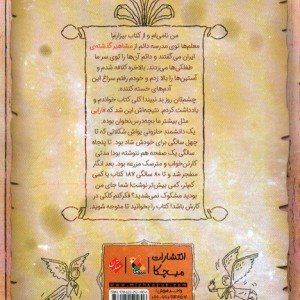 من نامی‌ام و از کتاب بیزارم!
معلم‌ها توی مدرسه دائم از مشاهیر گذشته‌ی
ایران می‌گفتند و دائم آن‌ها را توی سر ما
طفلکی‌ها می‌زدند. بالاخره کلافه شدم و
آستین‌ها را بالا زدم و خودم رفتم سراغ این
آدم‌های خسته کننده.
چشمتان روز بد نبیند! کلی کتاب خواندم و
یادداشت کردم. نتیجه‌اش این شد که فارابی
مثل بیشتر ما بچه‌درسخوان نبوده.
یک دانشمند حلزونی یواش شگفتی که تا
چهل سالگی برای خودش شاد بود. تا پنجاه
سالگی یک صفحه هم ننوشته بود! مدتی
کارتن‌خواب و مترسک مزرعه بود. بعد انگار
منفجر شد و تا ۸۰ سالگی ۱۸۷ کتاب یا کمی
کمتر، کمی بیش‌تر نوشت! شما جای من
بودید مشکوک نمی‌شدید؟ فکرکنم کلکی در
کارش باشد! کتاب را بخوانید تا متوجه شوید.
انتشارات
میچکا